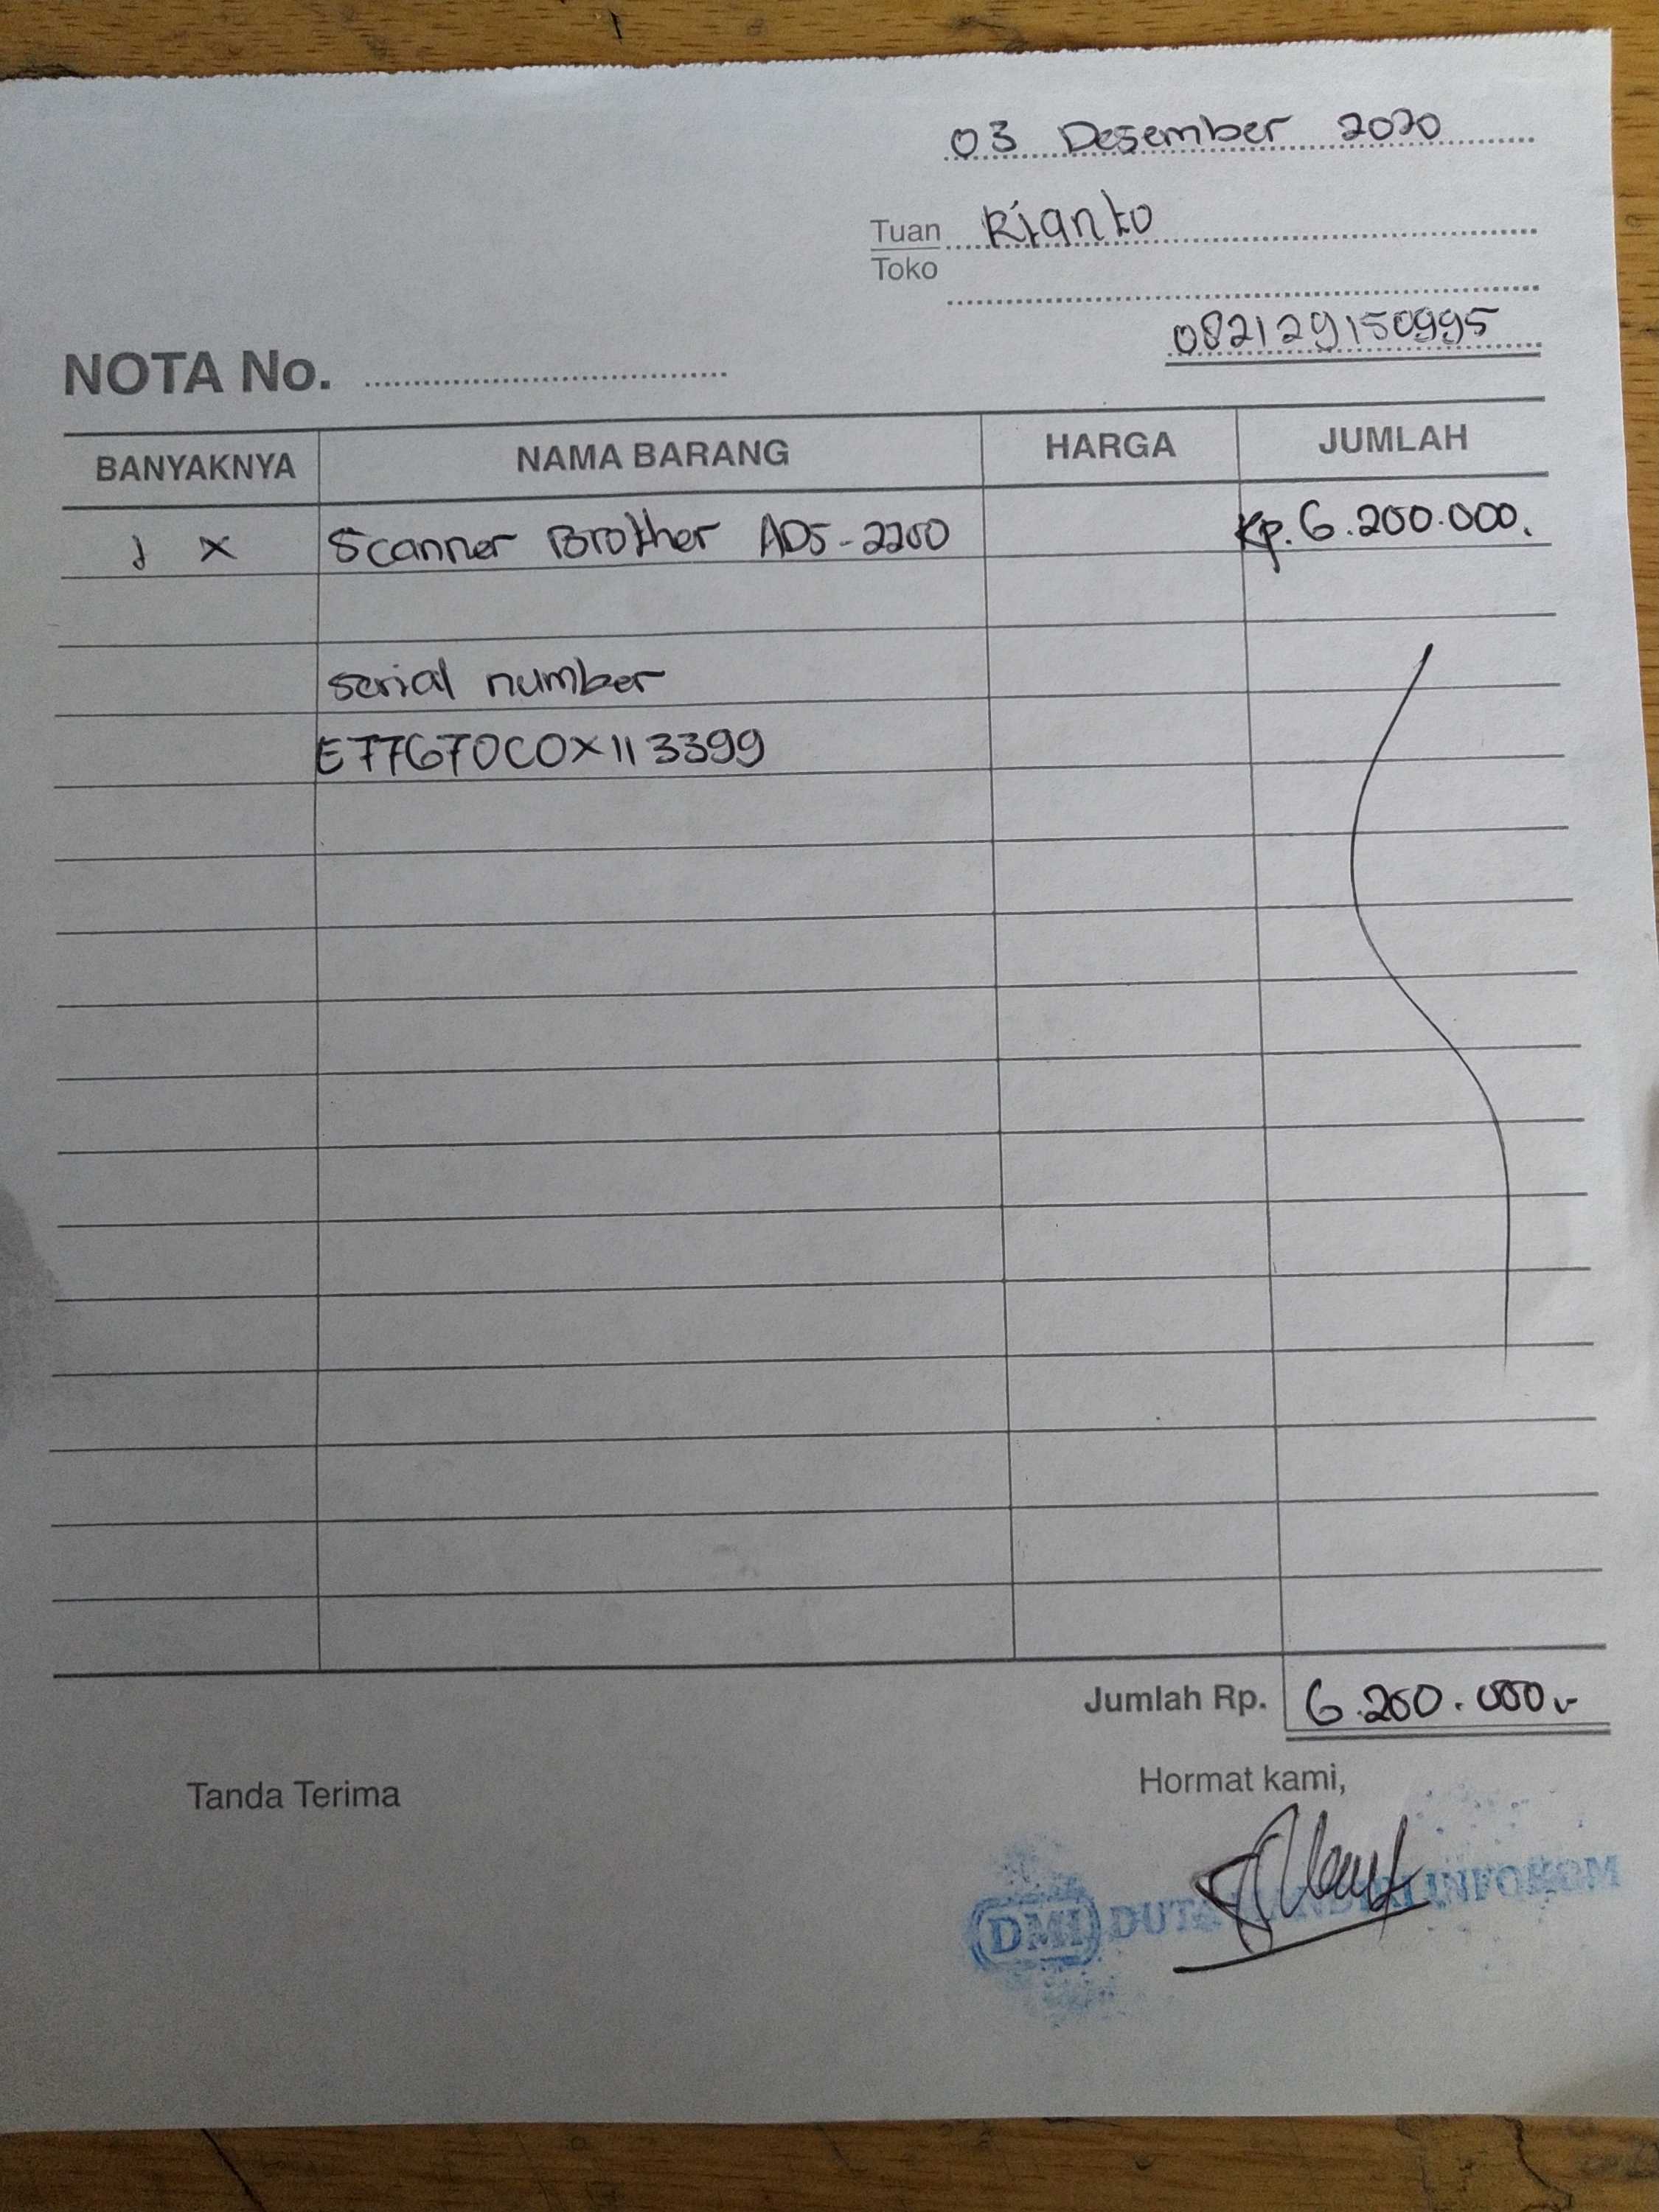 03 Desember 2020
Tuan Rianto
Toko
082129150995
NOTA No.
BANYAKNYA NAMA BARANG HARGA JUMLAH
1 x Scanner Brother ADS-2200 Rp. 6.200.000,
serial number
E77670C0X113399
Jumlah Rp. 6.200.000,-
Tanda Terima Hormat kami,
DMI DUTA MANDIRI INFOKOM